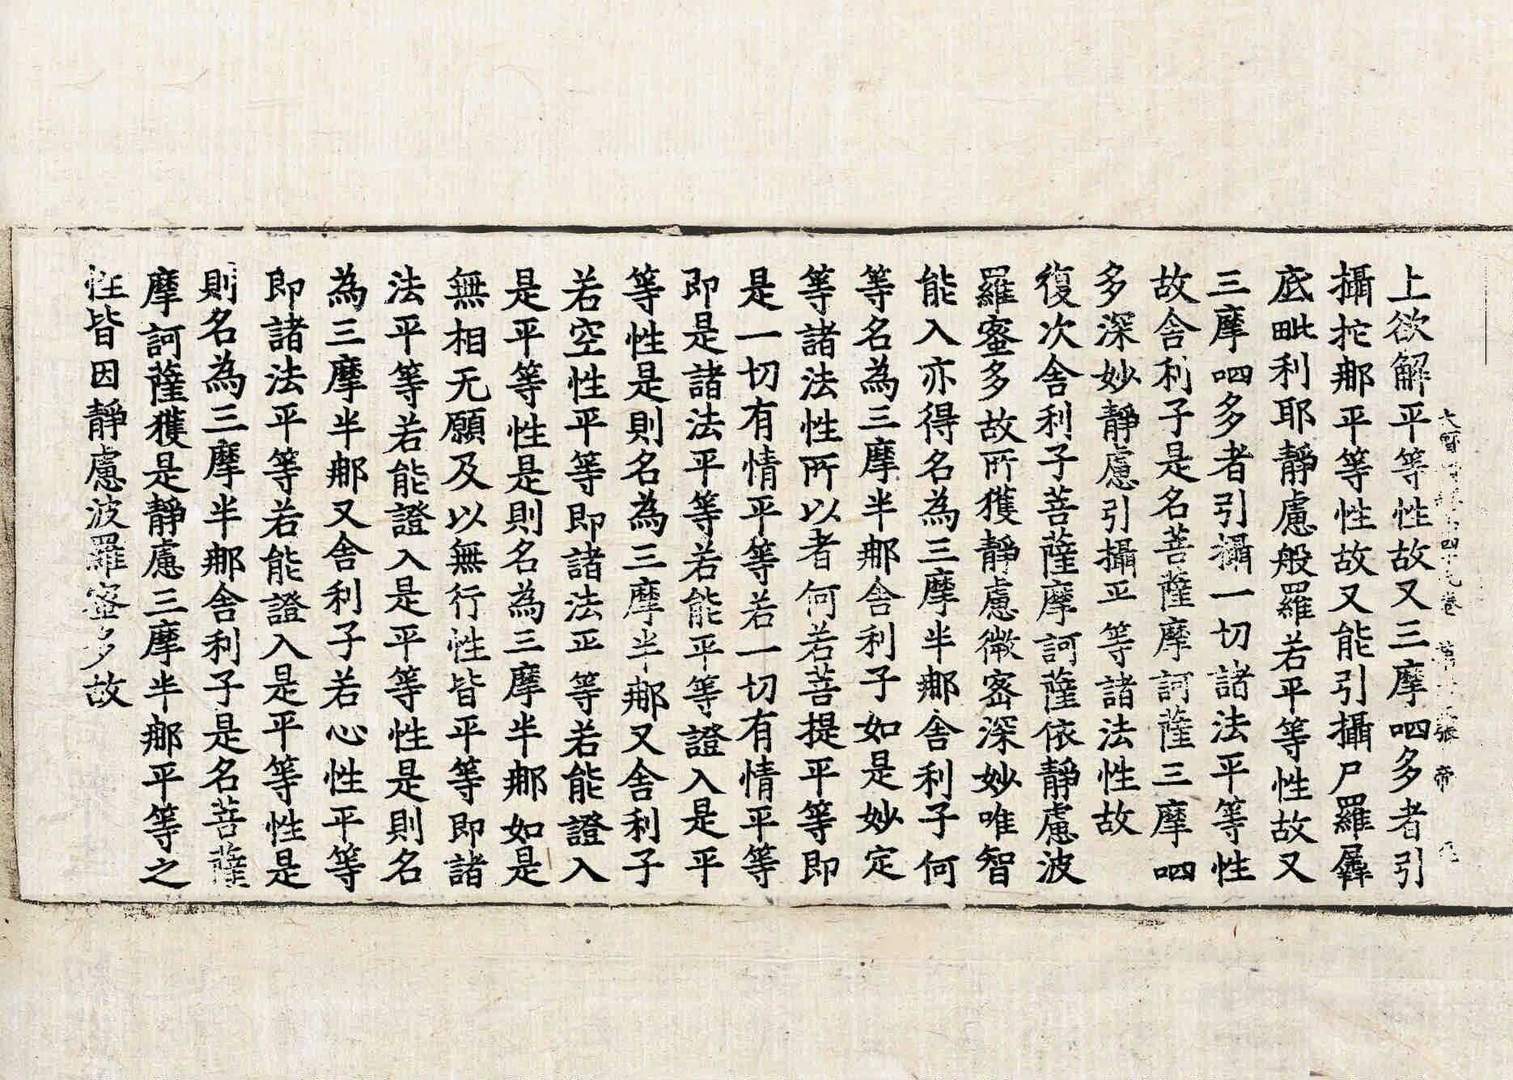 上欲解平等性故又三摩呬多者引
攝拕那平等性故又能引攝尸羅羼
底毗利耶靜慮般羅若平等性故又
三摩呬多者引攝一切諸法平等性
故舍利子是名菩薩摩訶薩三摩呬
多深妙靜慮引攝平等諸法性故
復次舍利子菩薩摩訶薩依靜慮波
羅蜜多故所獲靜慮微密深妙唯智
能入亦得名為三摩半那舍利子何
等名為三摩半那舍利子如是妙定
等諸法性所以者何若菩提平等即
是一切有情平等若一切有情平等
即是諸法平等若能平等證入是平
等性是則名為三摩半那又舍利子
若空性平等即諸法平等若能證入
是平等性是則名為三摩半那如是
無相无願及以無行性皆平等即諸
法平等若能證入是平等性是則名
為三摩半那又舍利子若心性平等
即諸法平等若能證入是平等性是
則名為三摩半那舍利子是名菩薩
摩訶薩獲是靜慮三摩半那平等之
性皆因靜慮波羅蜜多故